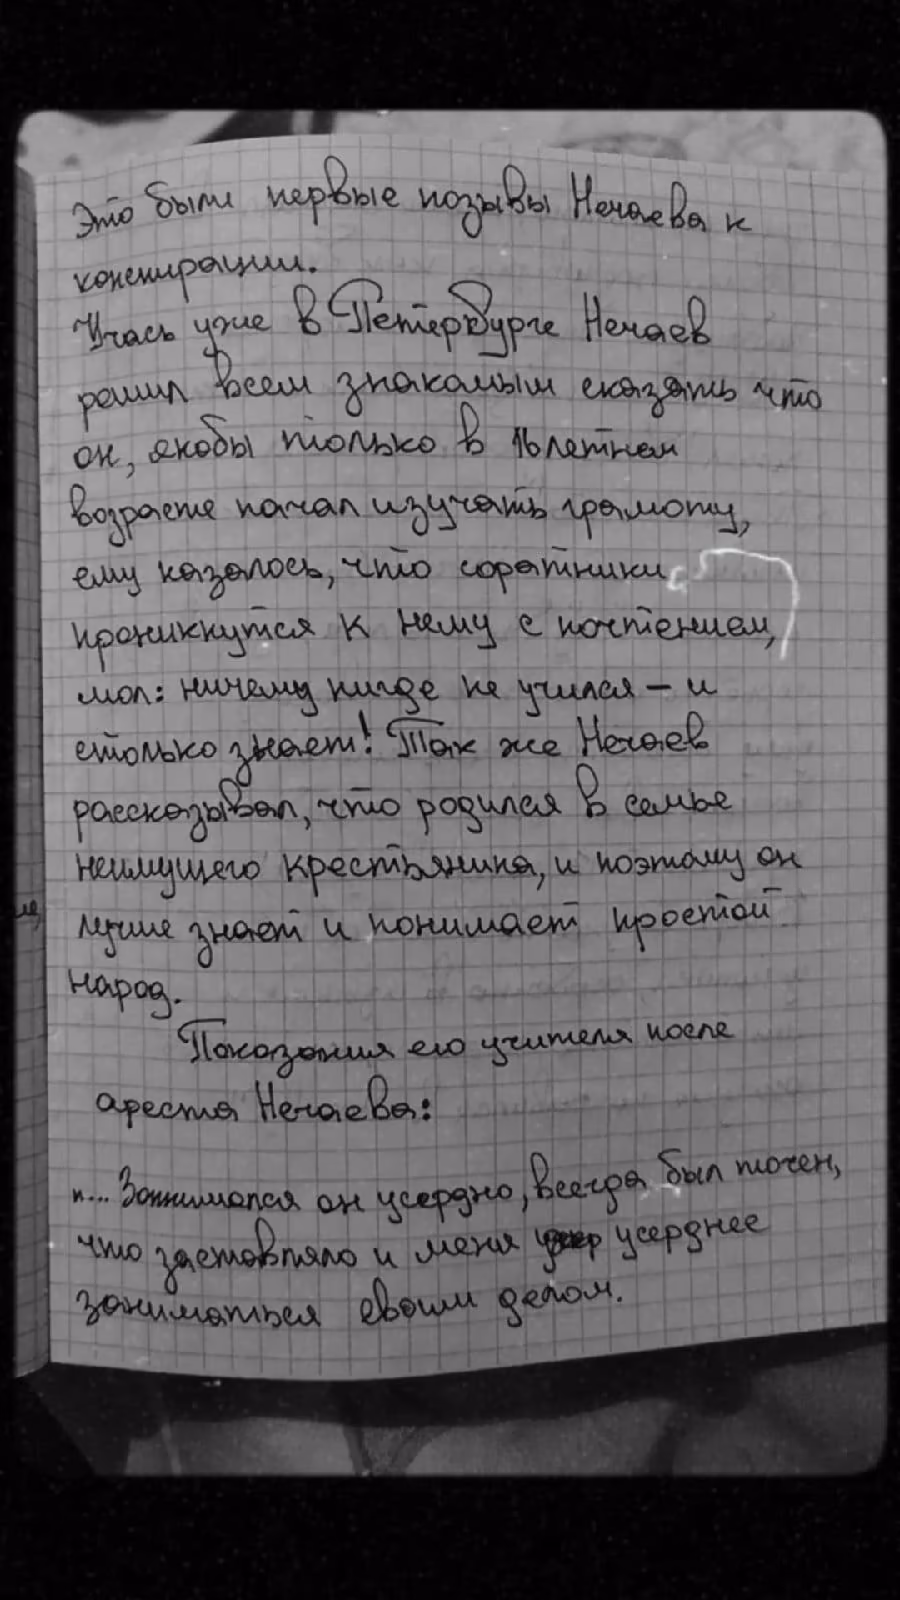 Это были первые позывы Нечаева к
конспирации.
Учась уже в Петербурге Нечаев
решил всем знакомым сказать что
он, якобы только в 16 летнем
возрасте начал изучать грамоту,
ему казалось, что соратники
проникнутся к нему с почтением,
мол: ничему нигде не учился – и
столько знает! Так же Нечаев
рассказывал, что родился в семье
неимущего крестьянина, и поэтому он
лучше знает и понимает простой
народ.
Показания его учителя после
ареста Нечаева:
"... Занимался он усердно, всегда был точен,
что заставляло и меня усерднее
заниматься своим делом.